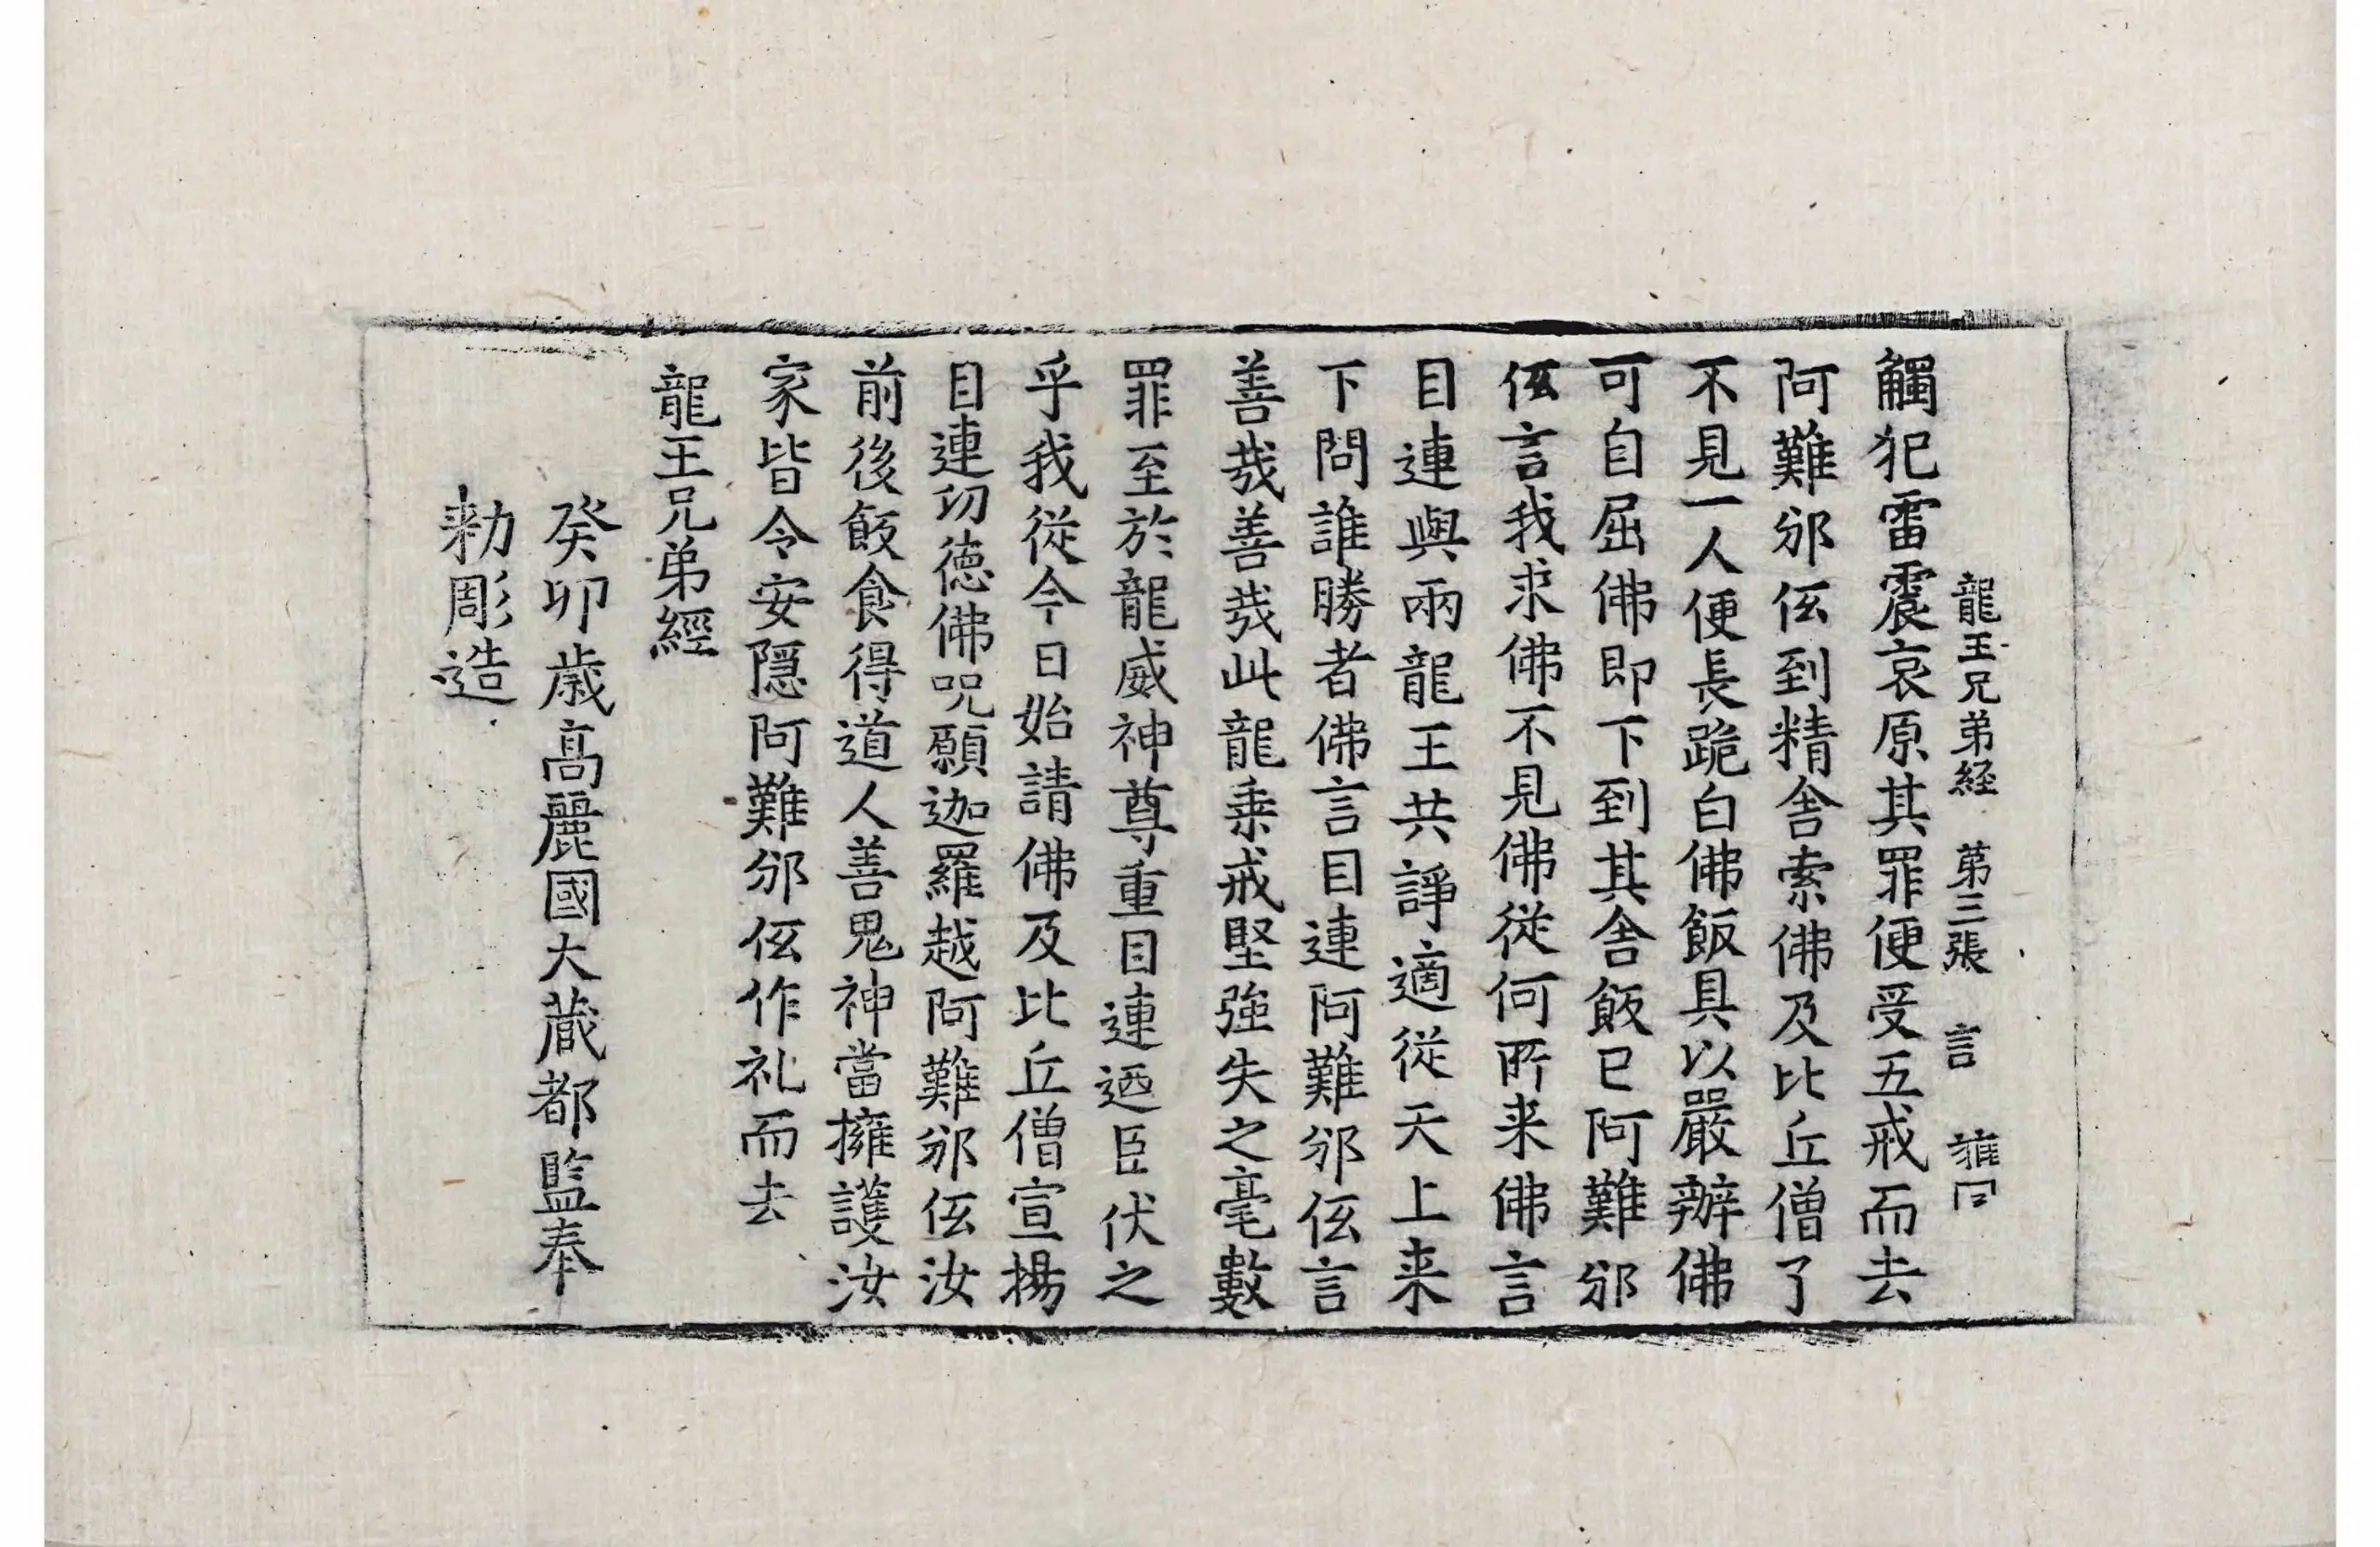 龍王兄弟経 第三張 言
觸犯雷震哀原其罪便受五戒而去
阿難邠仾到精舍索佛及比丘僧了
不見一人便長跪白佛飯具以嚴辦佛
可自屈佛即下到其舍飯已阿難邠
仾言我求佛不見佛從何所来佛言
目連與兩龍王共諍適從天上来
下問誰勝者佛言目連阿難邠仾言
善哉善哉此龍乗戒堅強失之毫數
罪至於龍威神尊重目連迺臣伏之
乎我從今日始請佛及比丘僧宣揚
目連功徳佛呪願迦羅越阿難邠仾汝
前後飯食得道人善鬼神當擁護汝
家皆令安隠阿難邠仾作礼而去
龍王兄弟經
癸卯歲高麗國大藏都監奉
勑彫造